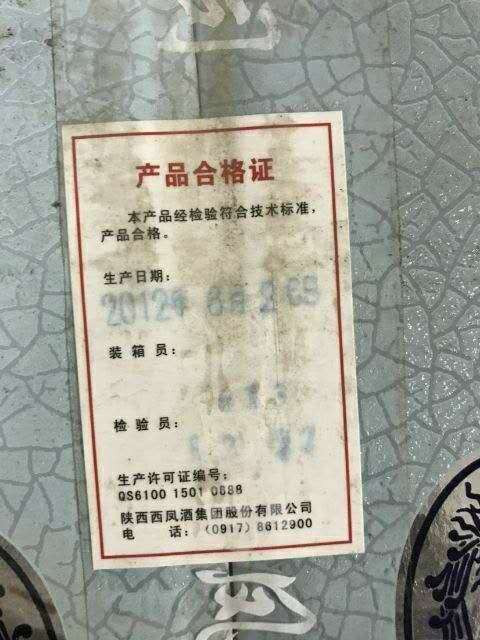 产品合格证
本产品经检验符合技术标准，
产品合格。
生产日期：
2012年
装箱员：
检验员：
生产许可证编号：
QS6100 1501 0888
陕西西凤酒集团股份有限公司
电　话：（0917）8612900